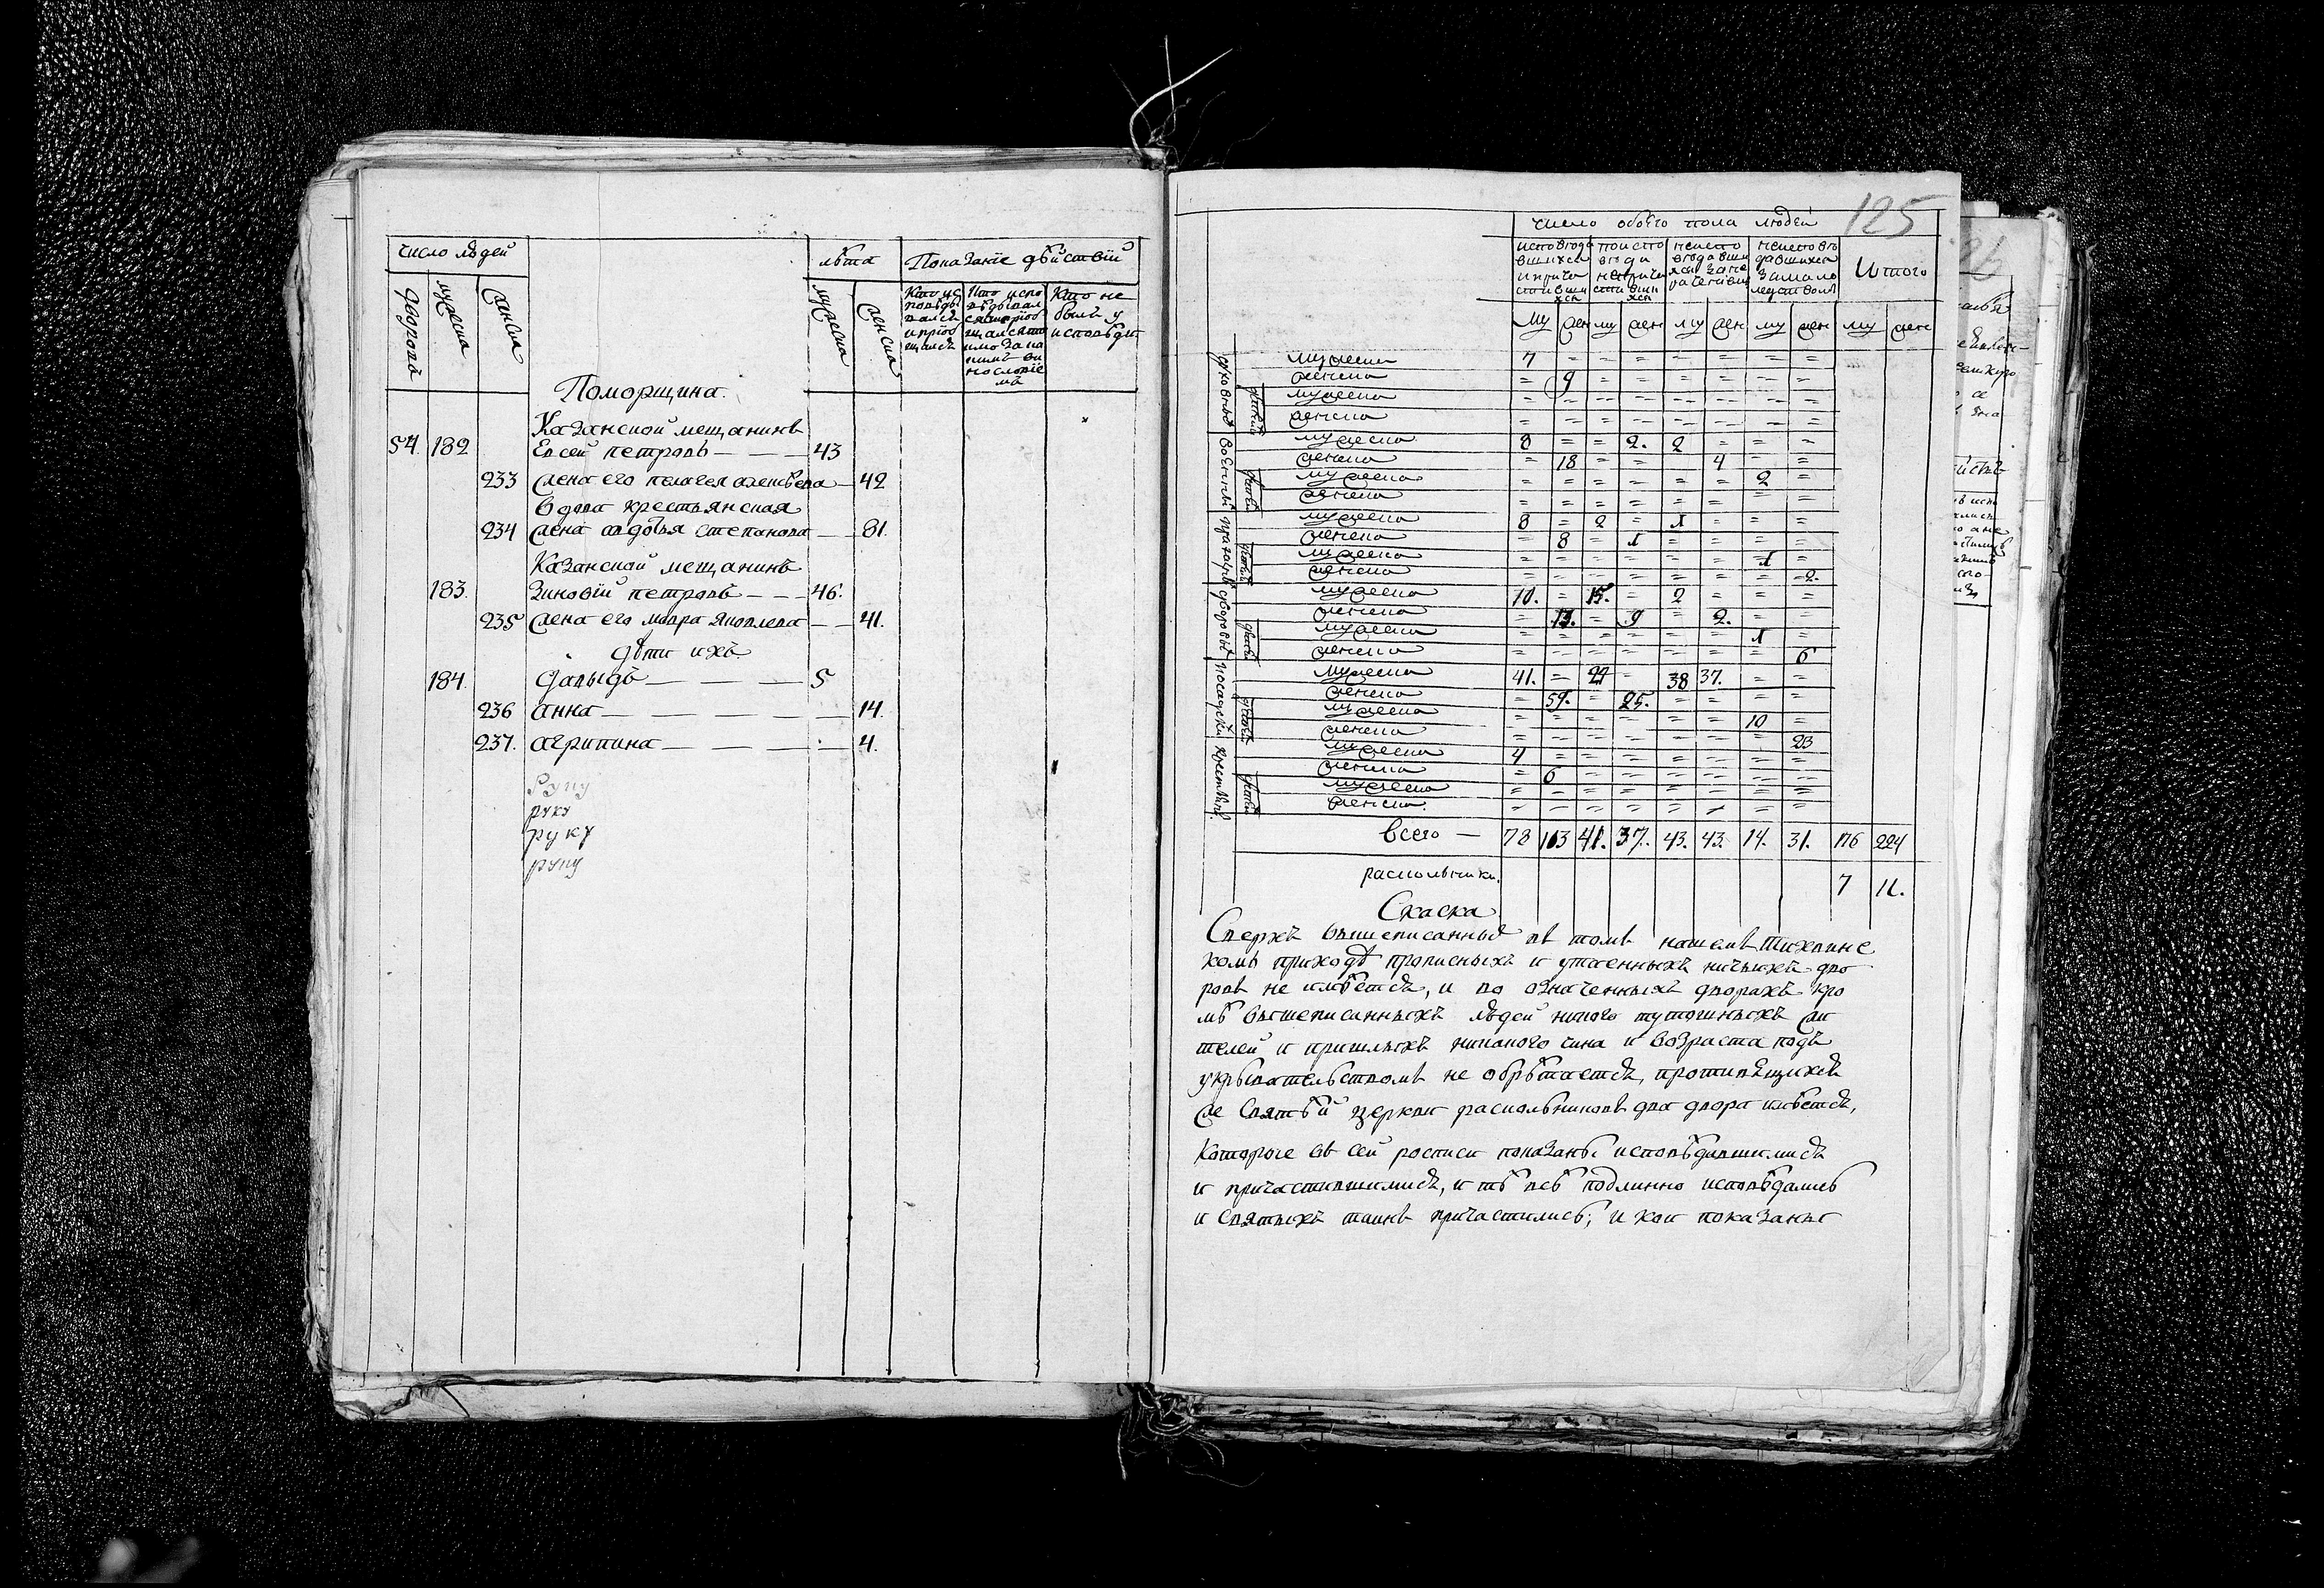 число людей
лѣта
Показанїе дѣйствїй
дворовъ
мужеска
женска
мужеска
женска
Кто ис
повѣды
вался
и прїоб
щался
Кто не
былъ у
исповѣди
Поморщина.
Казанской мещанинъ
54. 182 Евсей петровъ — 43
233 жена его пелагея алексѣева — 42
вдова крестьянская
234 жена авдотья степанова — 81.
Казанской мещанинъ
183. Зиновїй петровъ — 46.
235 жена его мавра яковлева — 41.
дѣти ихъ.
184. давыдъ — 5
236 анна — 14.
237. агрипина — 4.
руку
руку
руку
руку
125
число обоего пола людей
Итого
му жен му жен му жен му жен му жен
духовные
мужеска 7 = = = = = = =
женска = 9 = = = = = =
мужеска = = = = = = = =
женска = = = = = = = =
военные
мужеска 8 = = 2. 2 = = =
женска = 18 = = = 4 = =
мужеска = = = = = = 2 =
женска = = = = = = = =
мужеска 8 = 2 = 1 = = =
женска = 8 = 1 = = = =
мужеска = = = = = = 1 =
женска = = = = = = = 2.
дворовые
мужеска 10. = 15. = 2 = = =
женска = 13. = 9 = 2. = =
мужеска = = = = = = 1 =
женска = = = = = = = 6
посадски
мужеска 41. = 22 = 38 37. = =
женска = 59. = 25. = = = =
мужеска = = = = = = 10 =
женска = = = = = = = 23
мужеска 4 = = = = = = =
женска = 6 = = = = = =
мужеска = = = = = = = =
женска = = = = = = = =
Всего — 78 113 41. 37. 43. 43. 14. 31. 176 224
раскольники. 7 11.
Скаска
Сверхъ вышеписанныхъ въ томъ нашемъ Тихвинс
комъ приходѣ прописныхъ и утаенныхъ ничьихъ дво
ровъ не имѣется, и во означенныхъ дворахъ кро
мѣ вышеписанныхъ людей никого тутошныхъ жи
телей и пришлыхъ никакого чина и возраста подъ
укрывательствомъ не обрѣтается, противящихся
же святѣй церкви раскольниковъ два двора имѣется,
которые въ сей росписи показаны исповѣдавшимися
и причастившимися, и тѣ всѣ подлинно исповѣдались
и святыхъ таинъ причастились; и кои показаны